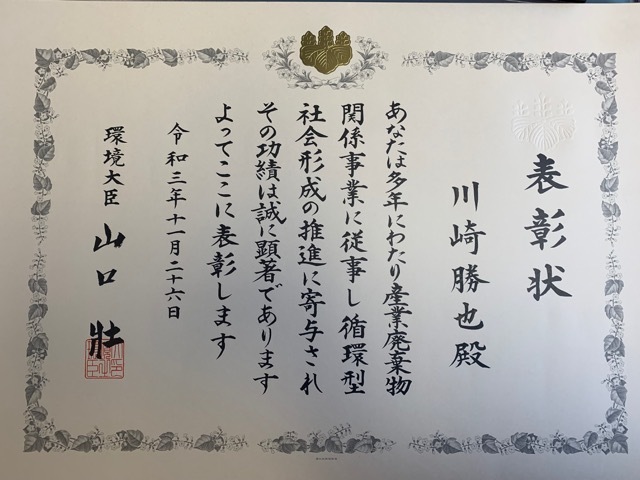 表彰状
川崎勝也殿
あなたは多年にわたり産業廃棄物
関係事業に従事し循環型
社会形成の推進に寄与され
その功績は誠に顕著であります
よってここに表彰します
令和三年十一月二十六日
環境大臣 山口壯